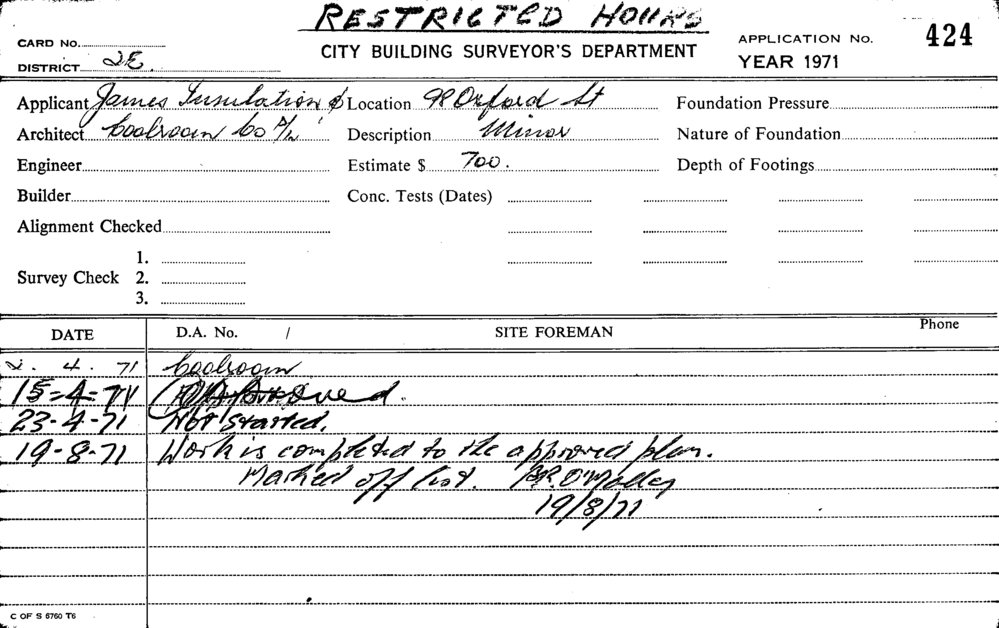 RESTRICTED HOURS
CARD No. CITY BUILDING SURVEYOR'S DEPARTMENT APPLICATION No. 424
DISTRICT 2E. YEAR 1971
Applicant James Insulation & Location 98 Oxford St Foundation Pressure
Architect Coolroom Co P/L Description Minor Nature of Foundation
Engineer Estimate $ 700. Depth of Footings
Builder Conc. Tests (Dates)
Alignment Checked
1.
Survey Check 2.
3.
DATE D.A. No. / SITE FOREMAN Phone
4. 71 Coolroom
15-4-71 Approved.
23-4-71 Not started.
19-8-71 Work is completed to the approved plan.
Marked off list. O'Malley
19/8/71
C OF S 6760 T6